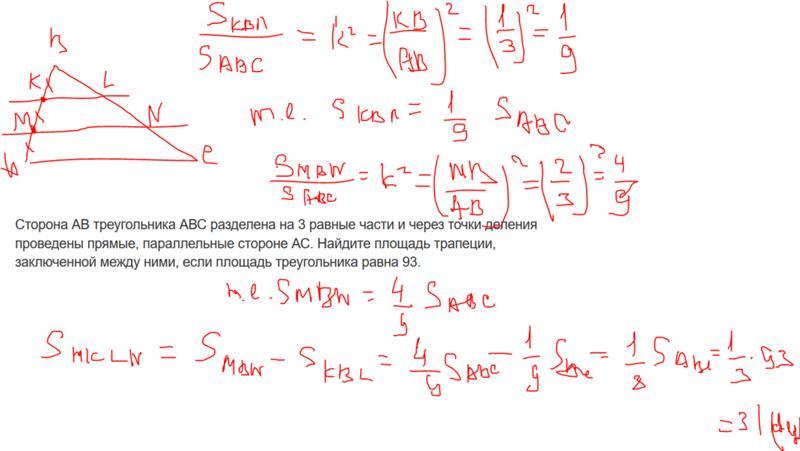 S_KBЛ / S_ABC = k² = (KB / AB)² = (1/3)² = 1/9
B
K L
M N
A C
т.е. S_KBЛ = 1/9 S_ABC
S_MBN / S_ABC = k² = (MB / AB)² = (2/3)² = 4/9
Сторона АВ треугольника АВС разделена на 3 равные части и через точки деления
проведены прямые, параллельные стороне АС. Найдите площадь трапеции,
заключенной между ними, если площадь треугольника равна 93.
т.е. S_MBN = 4/9 S_ABC
S_MKLN = S_MBN − S_KBL = 4/9 S_ABC − 1/9 S_ABC = 1/3 S_ABC = 1/3 · 93
= 31